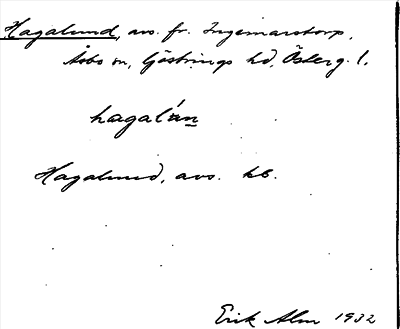 Hagalund, avs. fr. Ingemarstorp,
Åsbo sn, Göstrings hd, Österg. l.
hagalán
Hagalund, avs. kb.
Erik Alm 1932